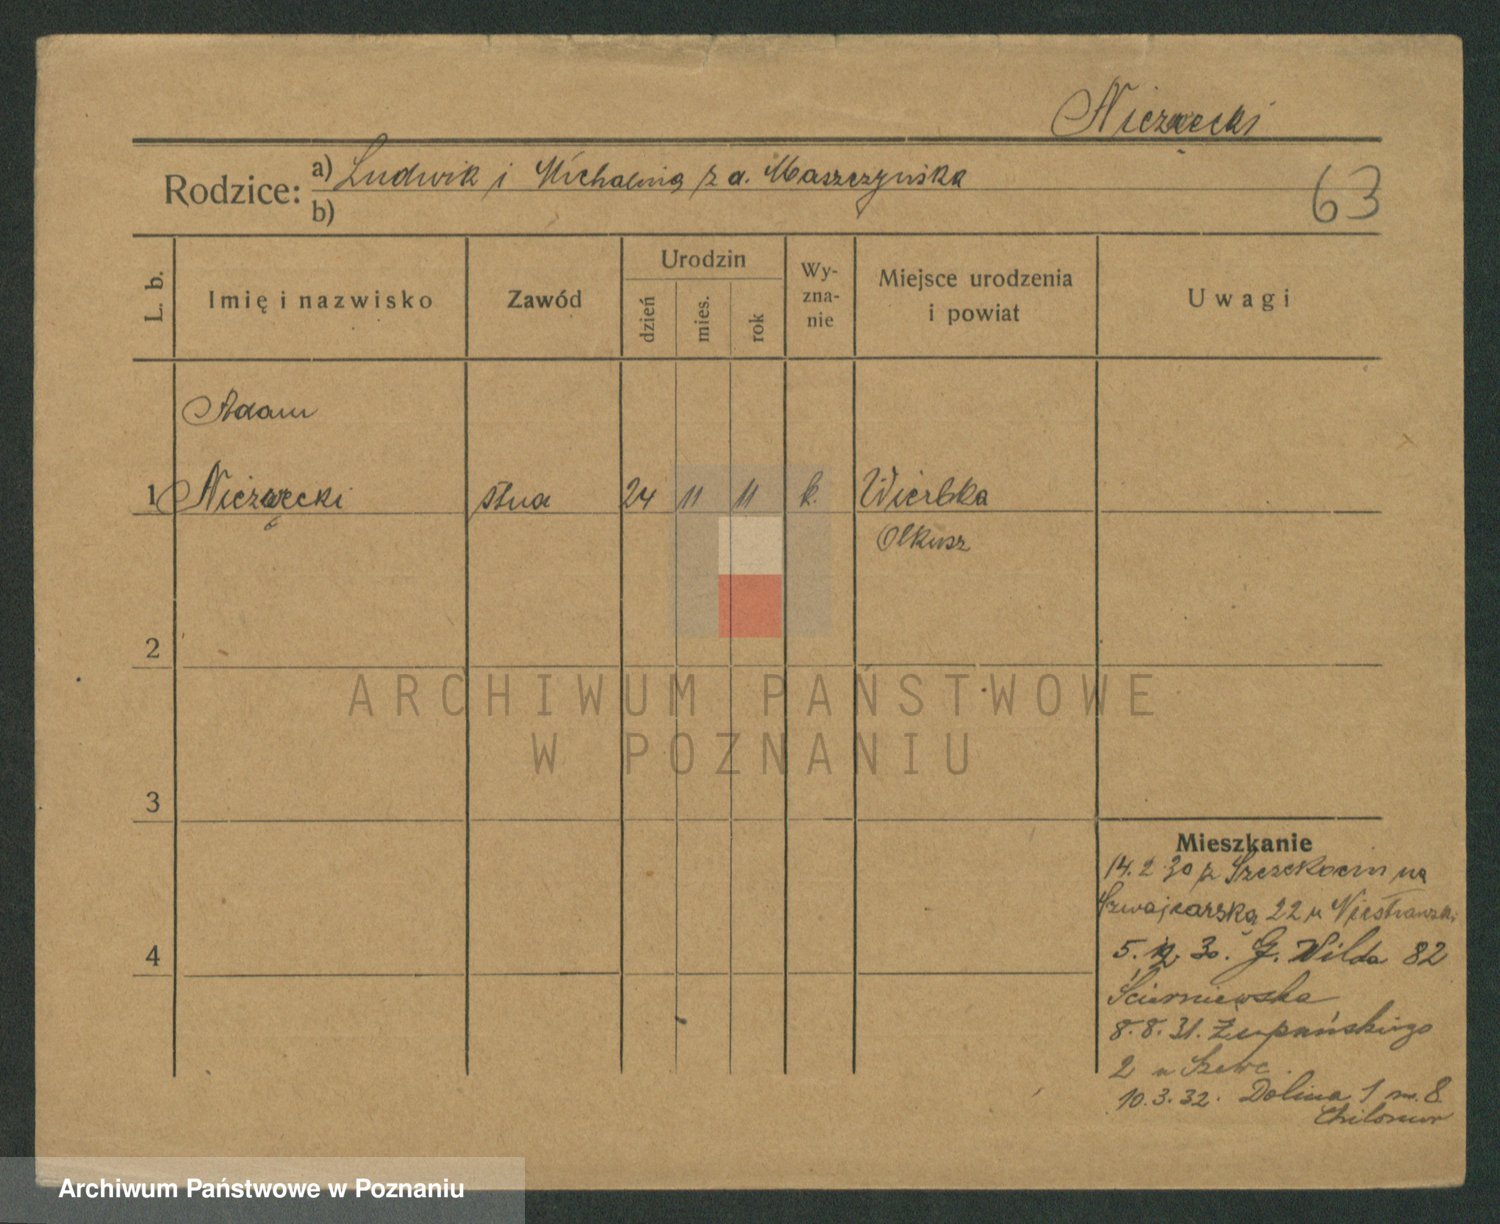 Rodzice: a) Ludwik i Michalina z d. Maszczyńska
63
b)
L. b.
Imię i nazwisko
Zawód
Urodzin
dzień
mies.
rok
Wy-
zna-
nie
Miejsce urodzenia
i powiat
Uwagi
Adam
1 stna 24 11 11 k. Wierbka
Olkusz
2
3
4
ARCHIWUM PAŃSTWOWE
W POZNANIU
Mieszkanie
14.2 30 z Szczekocin na
Szwajcarską 22 u
5. 30. G. Wilda 82
8.8.31. Żupańskiego
2 u Szewc.
10.3.32. Dolina 1 m. 8
Archiwum Państwowe w Poznaniu